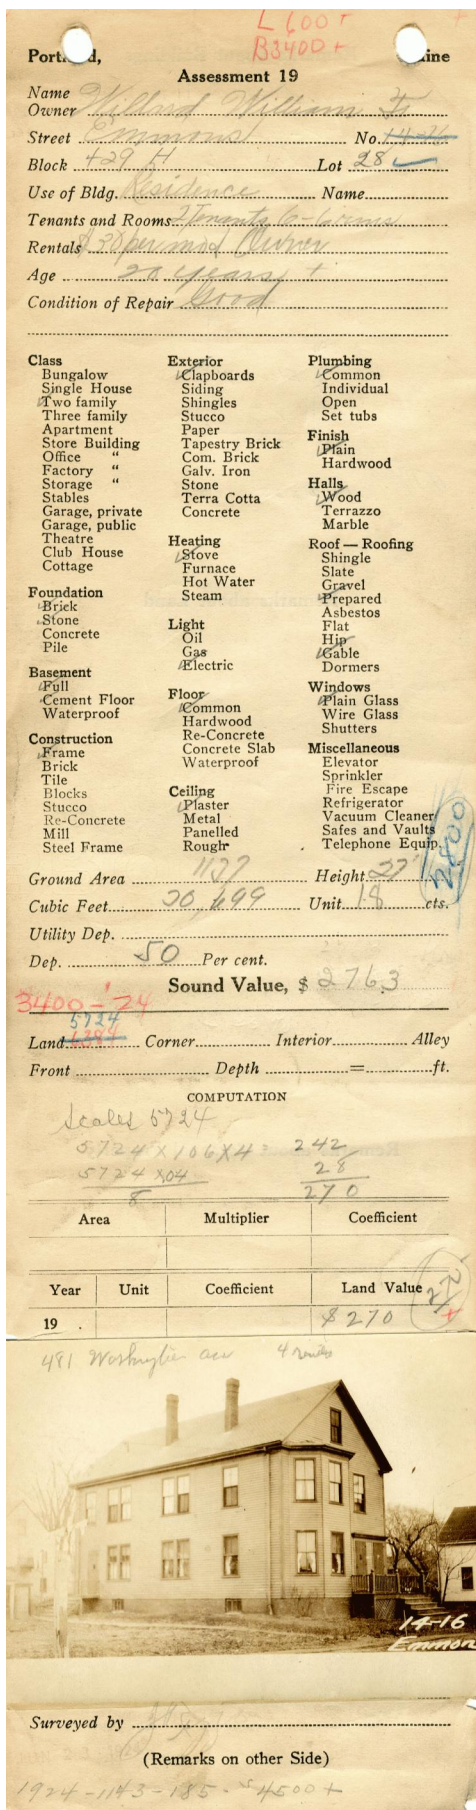 L 600 +
B 3400 +
Portland, Maine
Assessment 19
Name
Owner Willard William
Street Emmons No. 14-16
Block 429 H Lot 28
Use of Bldg. Residence Name
Tenants and Rooms 2 Tenants 6-6 rms
Rentals $30 per mo Owner
Age 20 years +
Condition of Repair Good
Class
Bungalow
Single House
Two family
Three family
Apartment
Store Building
Office "
Factory "
Storage "
Stables
Garage, private
Garage, public
Theatre
Club House
Cottage
Foundation
Brick
Stone
Concrete
Pile
Basement
Full
Cement Floor
Waterproof
Construction
Frame
Brick
Tile
Blocks
Stucco
Re-Concrete
Mill
Steel Frame
Exterior
Clapboards
Siding
Shingles
Stucco
Paper
Tapestry Brick
Com. Brick
Galv. Iron
Stone
Terra Cotta
Concrete
Heating
Stove
Furnace
Hot Water
Steam
Light
Oil
Gas
Electric
Floor
Common
Hardwood
Re-Concrete
Concrete Slab
Waterproof
Ceiling
Plaster
Metal
Panelled
Rough
Plumbing
Common
Individual
Open
Set tubs
Finish
Plain
Hardwood
Halls
Wood
Terrazzo
Marble
Roof — Roofing
Shingle
Slate
Gravel
Prepared
Asbestos
Flat
Hip
Gable
Dormers
Windows
Plain Glass
Wire Glass
Shutters
Miscellaneous
Elevator
Sprinkler
Fire Escape
Refrigerator
Vacuum Cleaner
Safes and Vaults
Telephone Equip.
2800
Ground Area 1137 Height 27'
Cubic Feet 30,699 Unit 18 cts.
Utility Dep.
Dep. 50 Per cent.
Sound Value, $ 2763
3400 - '24
5724
Land Corner Interior Alley
Front Depth = ft.
COMPUTATION
Scales 5724
5724 x 106 x 4 = 242
5724 x 04 28
8 270
Area Multiplier Coefficient
Year Unit Coefficient Land Value
19 $ 270
481 Washington ave
14-16
Emmon
Surveyed by
(Remarks on other Side)
1924 - 1143 - 185 - $4500 +